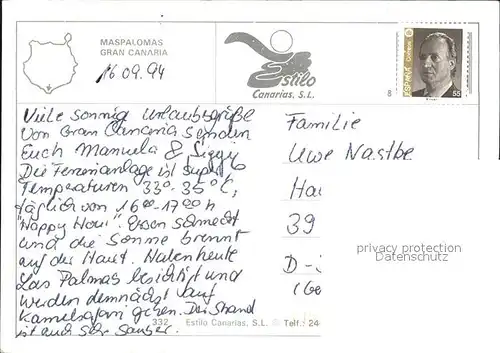 MASPALOMAS
GRAN CANARIA
16.09.94
Estilo
Canarias, S.L.
8
ESPAÑA
Correos
55
Viele sonnig Urlaubsgrüße
von Gran Canaria senden
Euch Manuela & Siggi
Die Ferienanlage ist super!
Temperaturen 33°-35°C,
täglich von 16°°-17°° h
"Happy Hour". Essen schmeckt
und die Sonne brennt
auf der Haut. Haben heute
Las Palmas besichtigt und
werden demnächst auf
Kamelsafari gehen. Der Strand
ist auch sehr sauber.
Familie
Uwe Nastke
Ha
39
D-
privacy protection
Datenschutz
332 Estilo Canarias, S.L. Telf.: 24